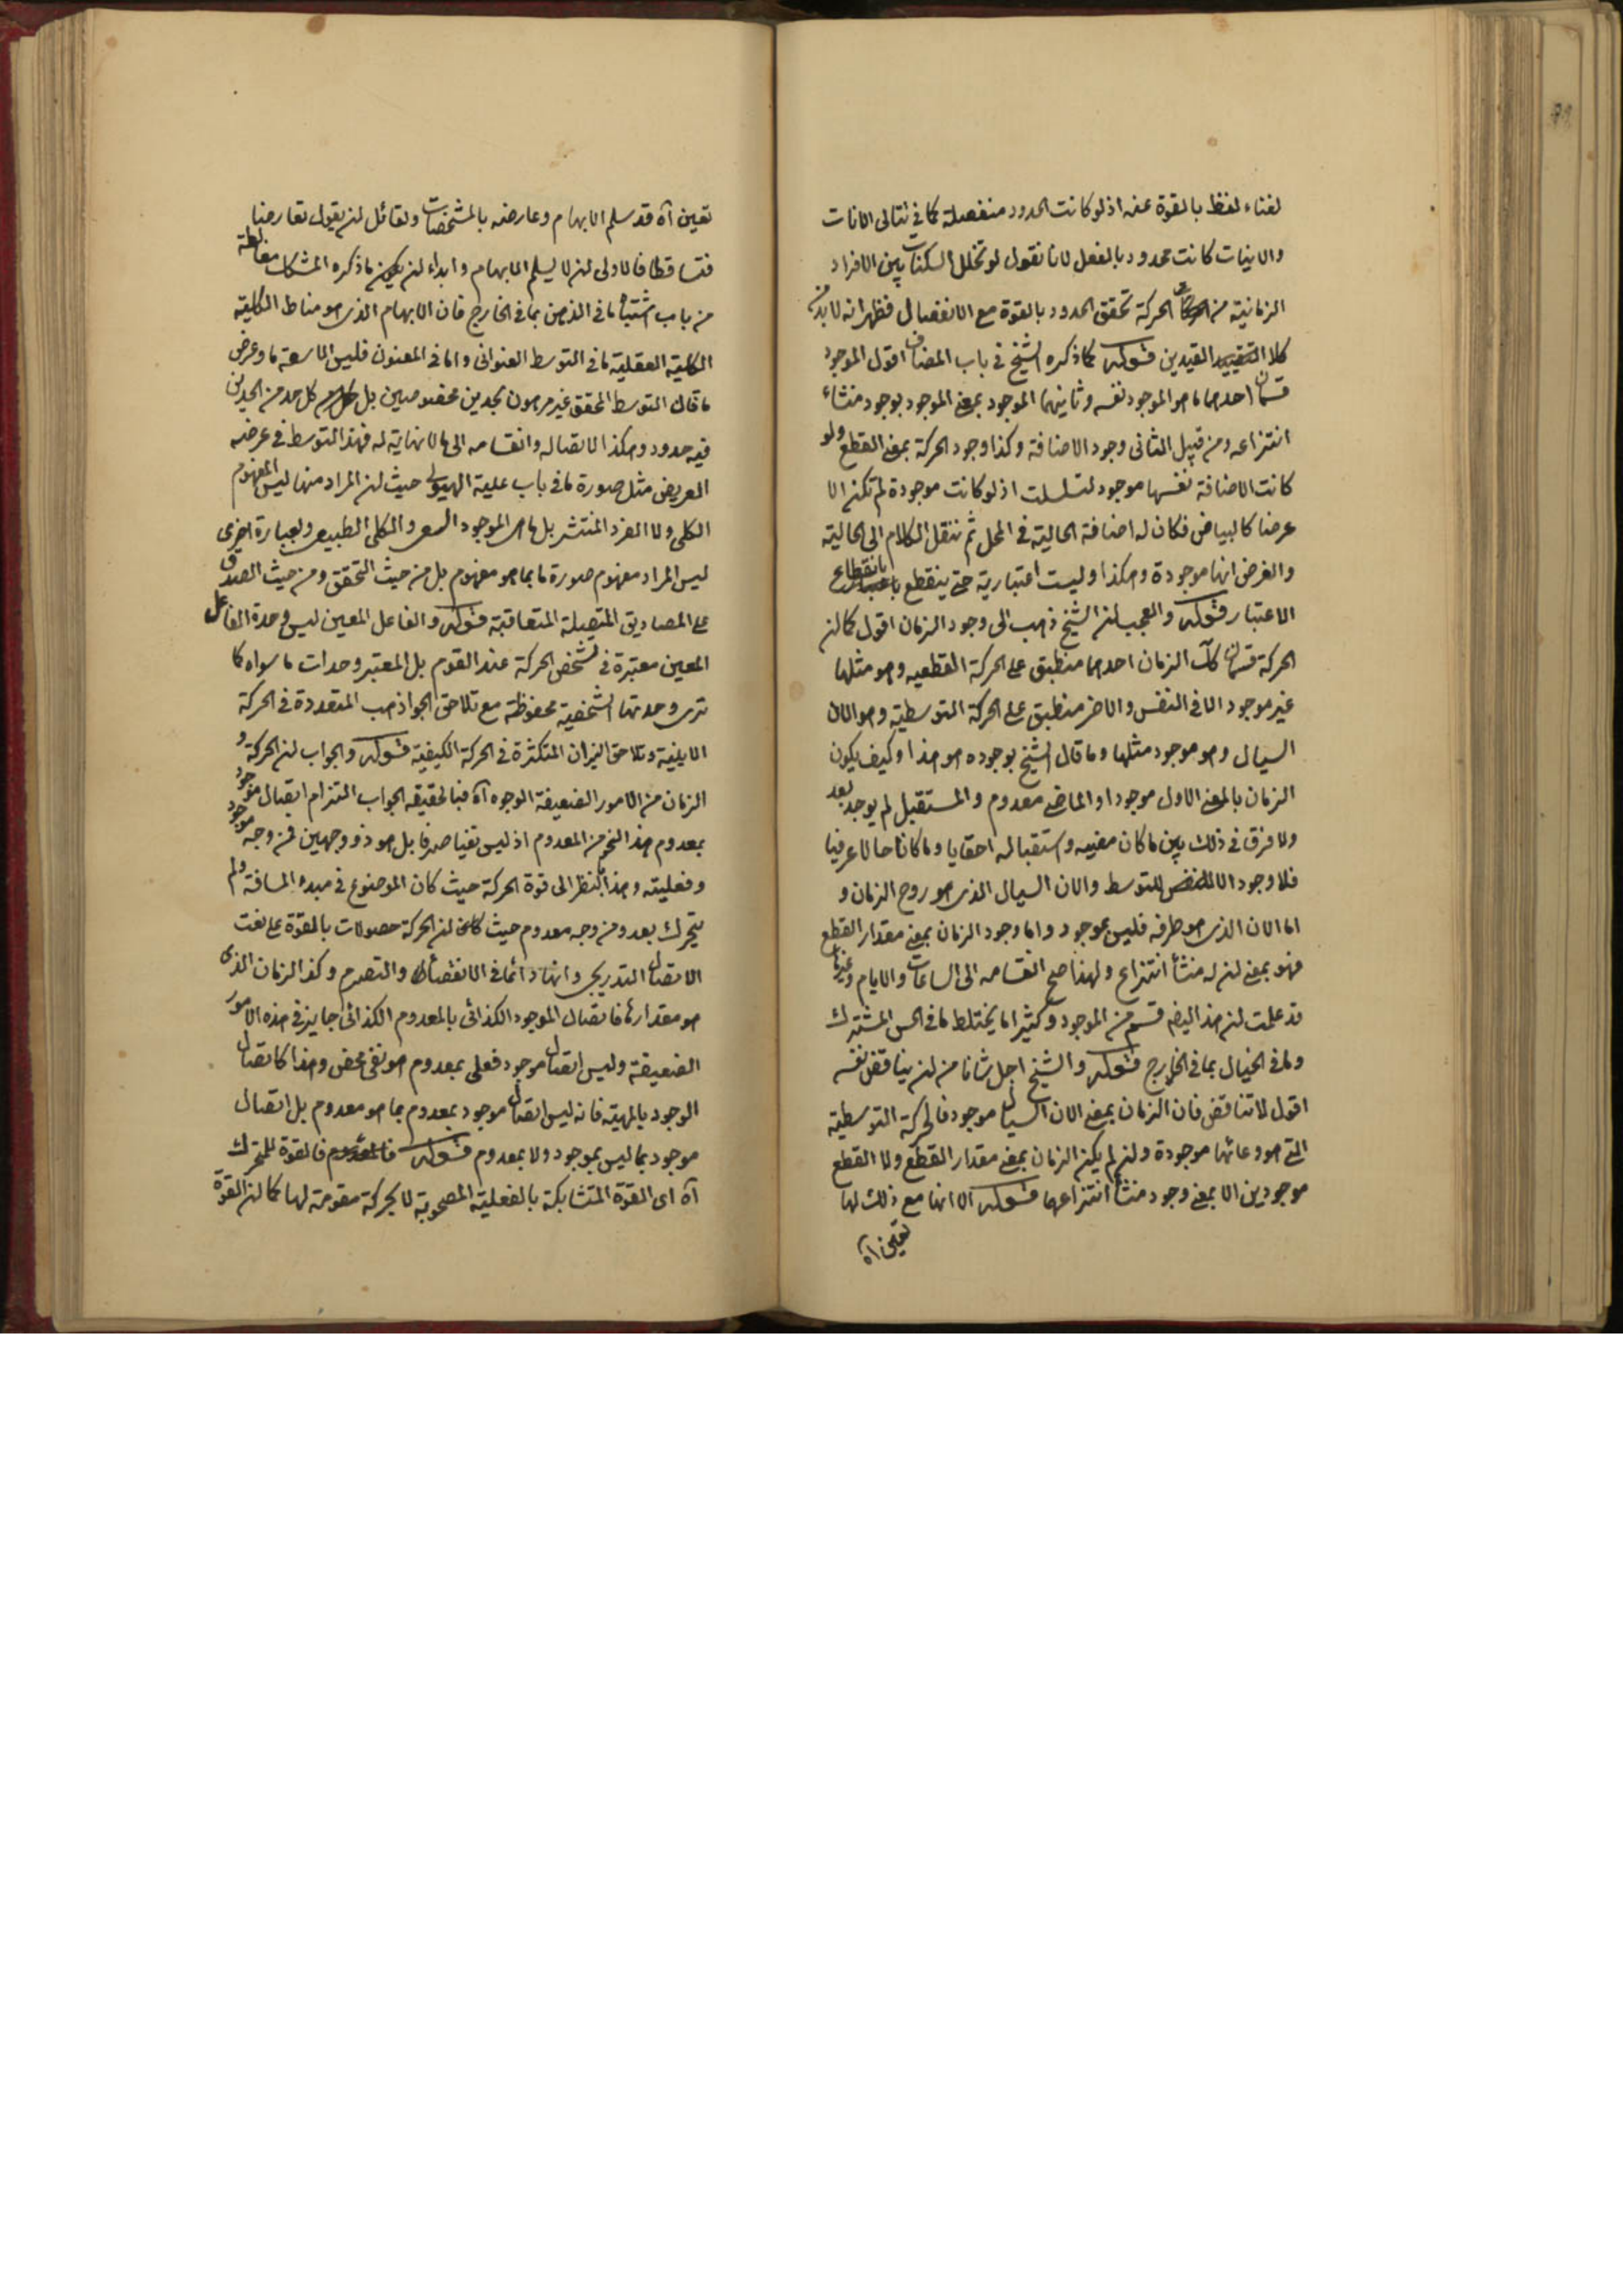 لغناء لفظ بالقوة عنه اذ لو كانت الحدود منفصلة كما في تتالى الانات
والانيات كانت محدود بالفعل لانا نقول لو تخلل السكنات بين الافراد
الزمانية من الحركة تحقق الحدود بالقوة مع الانفصال فظهر انه لا بد من
كلا القيدين قوله كما ذكره الشيخ في باب المضاف اقول الموجود
قسمان احدهما ما هو الموجود نفسه وثانيهما الموجود بمعنى الموجود بوجود منشاء
انتزاعه ومن قبيل الثانى وجود الاضافة وكذا وجود الحركة بمعنى القطع ولو
كانت الاضافة نفسها موجود لتسلسلت اذ لو كانت موجودة لم تكن الا
عرضا كالبياض فكان له اضافة الحالية في المحل ثم ننقل الكلام الى الحالية
والفرض انها موجودة وهكذا وليست اعتبارية حتى ينقطع بانقطاع
الاعتبار قوله والعجب ان الشيخ ذهب الى وجود الزمان اقول كما ان
الحركة قسمان كك الزمان احدهما منطبق على الحركة القطعيه وهو مثلها
غير موجود الا في النفس والاخر منطبق على الحركة التوسطية وهو الان
السيال وهو موجود مثلها وما قال الشيخ بوجوده هو هذا وكيف يكون
الزمان بالمعنى الاول موجودا والماضى معدوم والمستقبل لم يوجد بعد
ولا فرق في ذلك بين ما كان مضيه واستقباله احقابا وما كانا حالا عرفيا
فلا وجود الا للتوسط والان السيال الذى هو روح الزمان و
اما الان الذى هو طرفه فليس بموجود واما وجود الزمان بمعنى مقدار القطع
فهو بمعنى ان له منشأ انتزاع ولهذا صح انقسامه الى الساعات والايام وغيرها
قد علمت ان هذا ايضا قسم من الموجود وكثيرا ما يختلط ما في الحس المشترك
وما في الخيال بما في الخارج قوله والشيخ اجل شانا من ان يناقض نفسه
اقول لا تناقض فان الزمان بمعنى الان السيال موجود فالحركة التوسطية
التى هو وعائها موجودة وان لم يكن الزمان بمعنى مقدار القطع ولا القطع
موجودين الا بمعنى وجود منشأ انتزاعهما قوله الا انها مع ذلك لها
تعين اه
تعين آه قد سلم الابهام وعارضه بالمشخصات ولقائل ان يقول تعارضا
فتساقطا فالاولى ان لا يسلم الابهام وابداء ان يكون ما ذكره المشكك مغالطة
من باب اشتباه ما في الذهن بما في الخارج فان الابهام الذى هو مناط الكلية
الكلية العقلية ما في التوسط العنوانى واما في المعنون فليس الا سعة ما وعرض
ما فان التوسط المحقق غير مرهون بحدين مخصوصين بل كل حد من الحدين
فيه حدود وهكذا لاتصاله وانقسامه الى ما لا نهاية له فهذا التوسط في عرضه
العريض مثل صورة ما في باب علية الهيولى حيث ان المراد منها ليس المفهوم
الكلى ولا الفرد المنتشر بل ما هى الموجود السعى والكلى الطبيعى وبعبارة اخرى
ليس المراد مفهوم صورة ما بما هو مفهوم بل من حيث التحقق ومن حيث الصدق
على المصاديق المتصلة المتعاقبة قوله والفاعل المعين ليس وحدة الفاعل
المعين معتبرة في تشخص الحركة عند القوم بل المعتبر وحدات ما سواه كما
ترى وحدتها الشخصية محفوظة مع تلاحق الجواذب المتعددة في الحركة
الاينية وتلاحق النيران المتكثرة في الحركة الكيفية قوله والجواب ان الحركة و
الزمان من الامور الضعيفة الوجود آه فبالحقيقة الجواب التزام اتصال موجود
بمعدوم هذا النحو من المعدوم اذ ليس نفيا صرفا بل هو ذو وجهين فمن وجه موجود
وفعليته وهذا بالنظر الى قوة الحركة حيث كان الموضوع في مبدء المسافة ولم
يتحرك بعد ومن وجه معدوم حيث ان الحركة حصولات بالقوة على نعت
الاتصال التدريجى وانها دائما في الانقضاء والتصرم وكذا الزمان الذى
هو مقدارها فاتصال الموجود الكذائى بالمعدوم الكذائى جايز في هذه الامور
الضعيفة وليس اتصال موجود فعلى بمعدوم هو نفى محض وهذا كاتصال
الوجود بالمهية فانه ليس اتصال موجود بمعدوم بما هو معدوم بل اتصال
موجود بما ليس بموجود ولا بمعدوم قوله فالقوة للمتحرك
آه اى القوة المتشابكة بالفعلية المصحوبة للحركة مقومة لها كما ان القوة